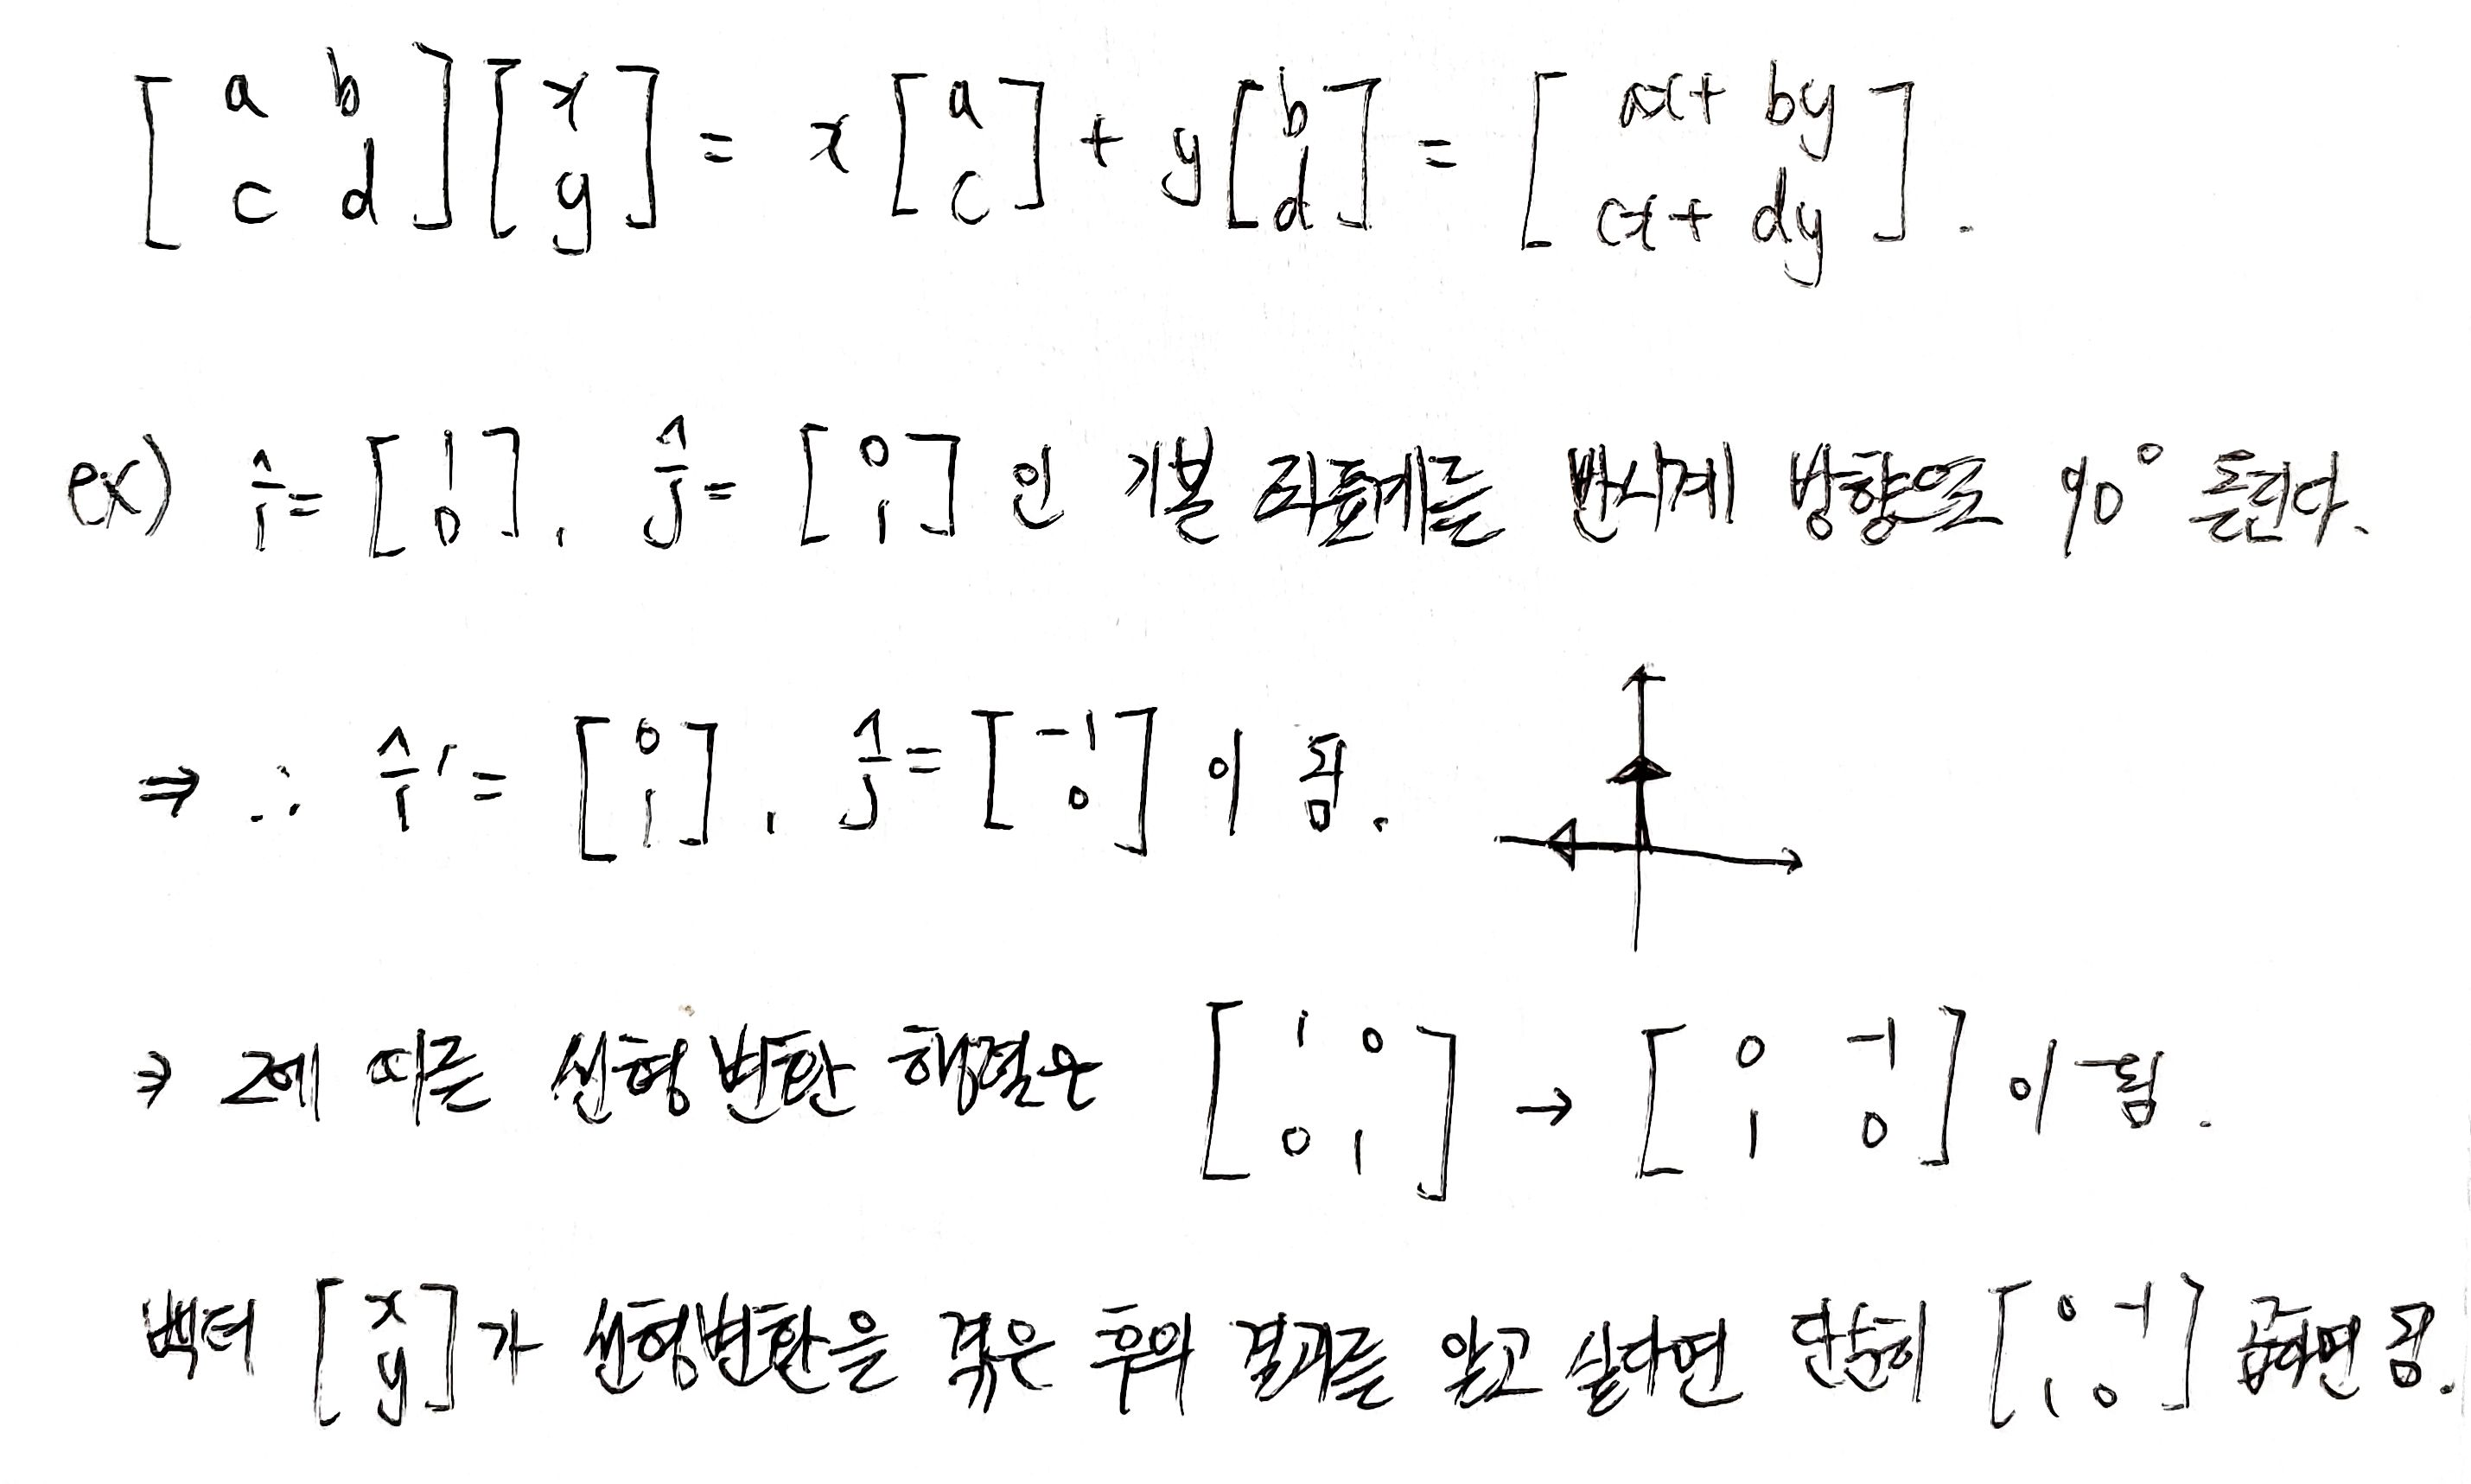 [a b; c d][x; y] = x[a; c] + y[b; d] = [ax+by; cx+dy].
ex) î = [1; 0], ĵ = [0; 1] 인 기본 좌표계를 반시계 방향으로 90° 돌린다.
⇒ ∴ î' = [0; 1], ĵ = [-1; 0] 이 됨.
⇒ 이에 따른 선형변환 행렬은 [1 0; 0 1] → [0 -1; 1 0] 이 됨.
벡터 [x; y]가 선형변환을 겪은 후의 결과를 알고 싶다면 단순히 [0 -1; 1 0] 곱하면 됨.